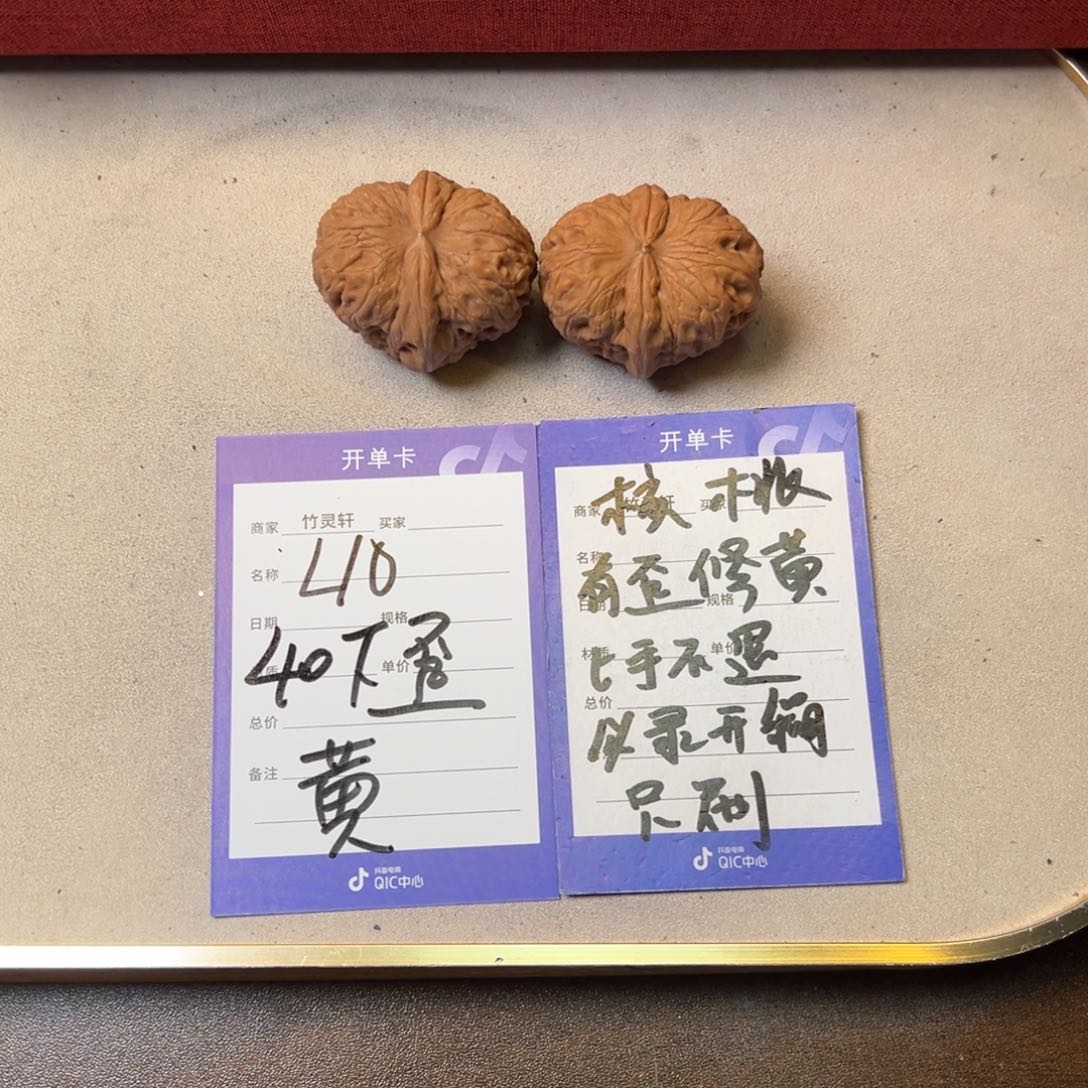 开单卡
商家 竹灵轩 买家
名称 410
日期 规格
40下歪
单价
总价
黄
备注
抖音电商
QIC中心
开单卡
核桃
商家 轩 买家
名称
有歪修黄
日期 规格
材质 单价
上手不退
总价
以录开
只刷
抖音电商
QIC中心